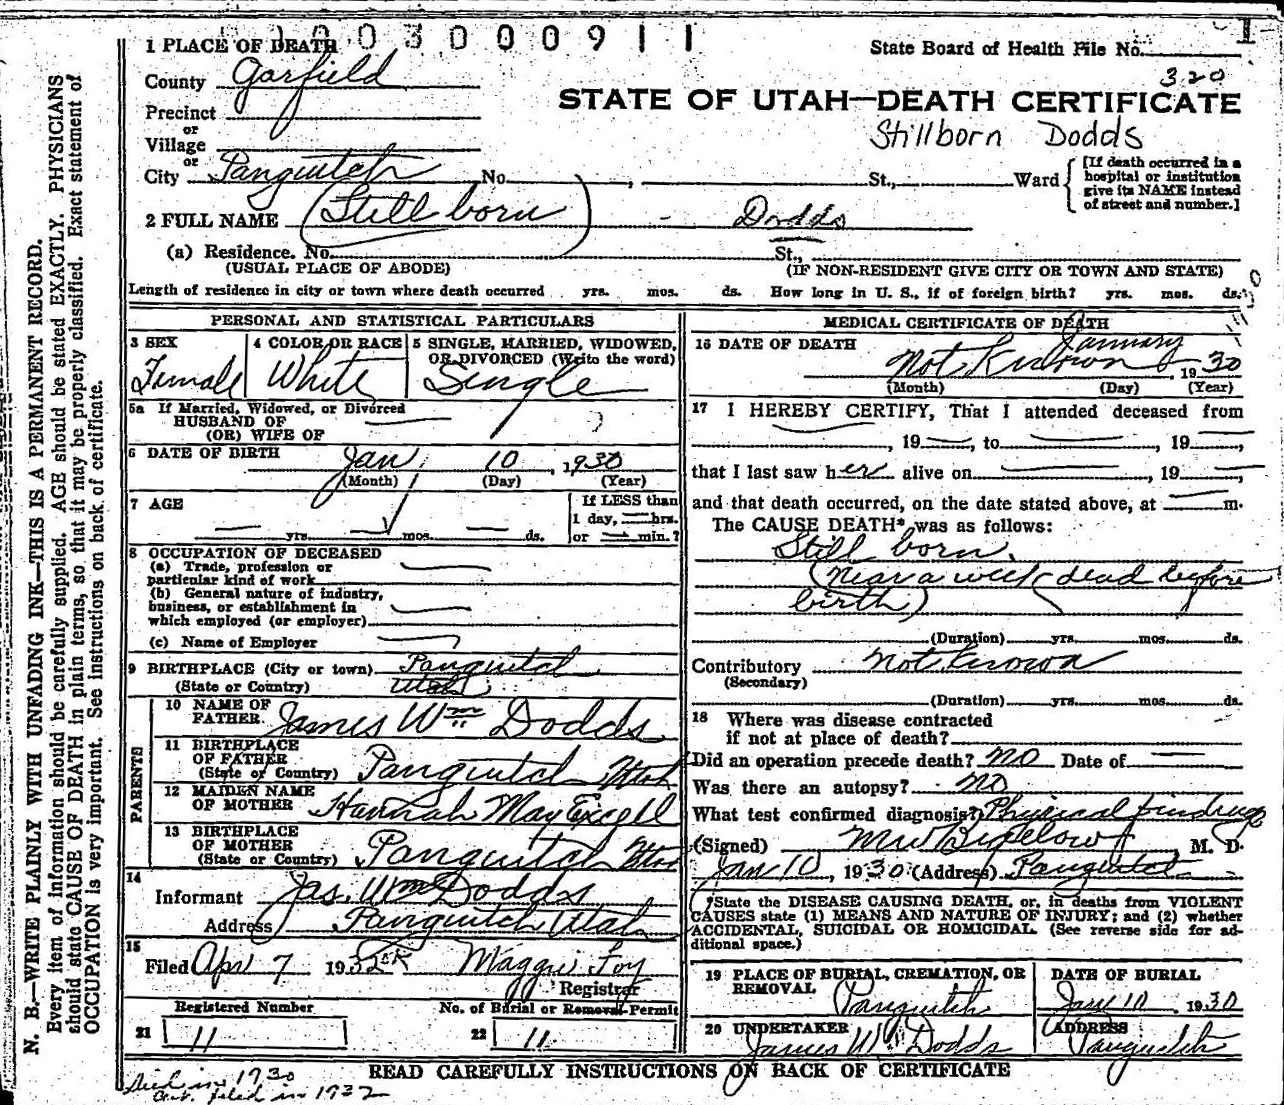 0003000911
1
1 PLACE OF DEATH
State Board of Health File No.
County Garfield
320
STATE OF UTAH—DEATH CERTIFICATE
Precinct
or
Stillborn Dodds
Village
or
City Panguitch No. , St., Ward
[If death occurred in a
hospital or institution
give its NAME instead
of street and number.]
2 FULL NAME (Still born) - Dodds
(a) Residence. No. St.,
(USUAL PLACE OF ABODE) (IF NON-RESIDENT GIVE CITY OR TOWN AND STATE)
Length of residence in city or town where death occurred yrs. mos. ds. How long in U. S., if of foreign birth? yrs. mos. ds.
PERSONAL AND STATISTICAL PARTICULARS
3 SEX 4 COLOR OR RACE 5 SINGLE, MARRIED, WIDOWED,
OR DIVORCED (Write the word)
Female White Single
5a If Married, Widowed, or Divorced
HUSBAND OF
(OR) WIFE OF
6 DATE OF BIRTH
Jan 10, 1930
(Month) (Day) (Year)
7 AGE
If LESS than
1 day, — hrs.
— yrs. — mos. — ds. or — min.?
8 OCCUPATION OF DECEASED
(a) Trade, profession or
particular kind of work —
(b) General nature of industry,
business, or establishment in
which employed (or employer) —
(c) Name of Employer —
9 BIRTHPLACE (City or town) Panguitch
(State or Country) Utah
PARENTS
10 NAME OF
FATHER James Wm Dodds
11 BIRTHPLACE
OF FATHER
(State or Country) Panguitch Utah
12 MAIDEN NAME
OF MOTHER Hannah May Excell
13 BIRTHPLACE
OF MOTHER
(State or Country) Panguitch Utah
14
Informant Jas. Wm Dodds
Address Panguitch Utah
15
Filed Apr 7 1932 Maggie Foy
Registrar
Registered Number No. of Burial or Removal Permit
21 11 22 11
MEDICAL CERTIFICATE OF DEATH
16 DATE OF DEATH January
Not Known, 1930
(Month) (Day) (Year)
17 I HEREBY CERTIFY, That I attended deceased from
—, 19—, to —, 19—,
that I last saw her alive on —, 19—
and that death occurred, on the date stated above, at — m.
The CAUSE DEATH* was as follows:
Still born.
(Near a week dead before
birth)
(Duration) yrs. mos. ds.
Contributory Not known
(Secondary)
(Duration) yrs. mos. ds.
18 Where was disease contracted
if not at place of death?
Did an operation precede death? No Date of —
Was there an autopsy? No
What test confirmed diagnosis? Physical findings
(Signed) M W Bigelow, M. D.
Jan 10, 1930 (Address) Panguitch
*State the DISEASE CAUSING DEATH, or, in deaths from VIOLENT
CAUSES state (1) MEANS AND NATURE OF INJURY; and (2) whether
ACCIDENTAL, SUICIDAL OR HOMICIDAL. (See reverse side for ad-
ditional space.)
19 PLACE OF BURIAL, CREMATION, OR
REMOVAL
Panguitch
DATE OF BURIAL
Jan 10 1930
20 UNDERTAKER
James Wm Dodds
ADDRESS
Panguitch
READ CAREFULLY INSTRUCTIONS ON BACK OF CERTIFICATE
Died in 1930
Cert. filed in 1932
N. B.—WRITE PLAINLY WITH UNFADING INK—THIS IS A PERMANENT RECORD.
Every item of information should be carefully supplied. AGE should be stated EXACTLY. PHYSICIANS
should state CAUSE OF DEATH in plain terms, so that it may be properly classified. Exact statement of
OCCUPATION is very important. See instructions on back of certificate.